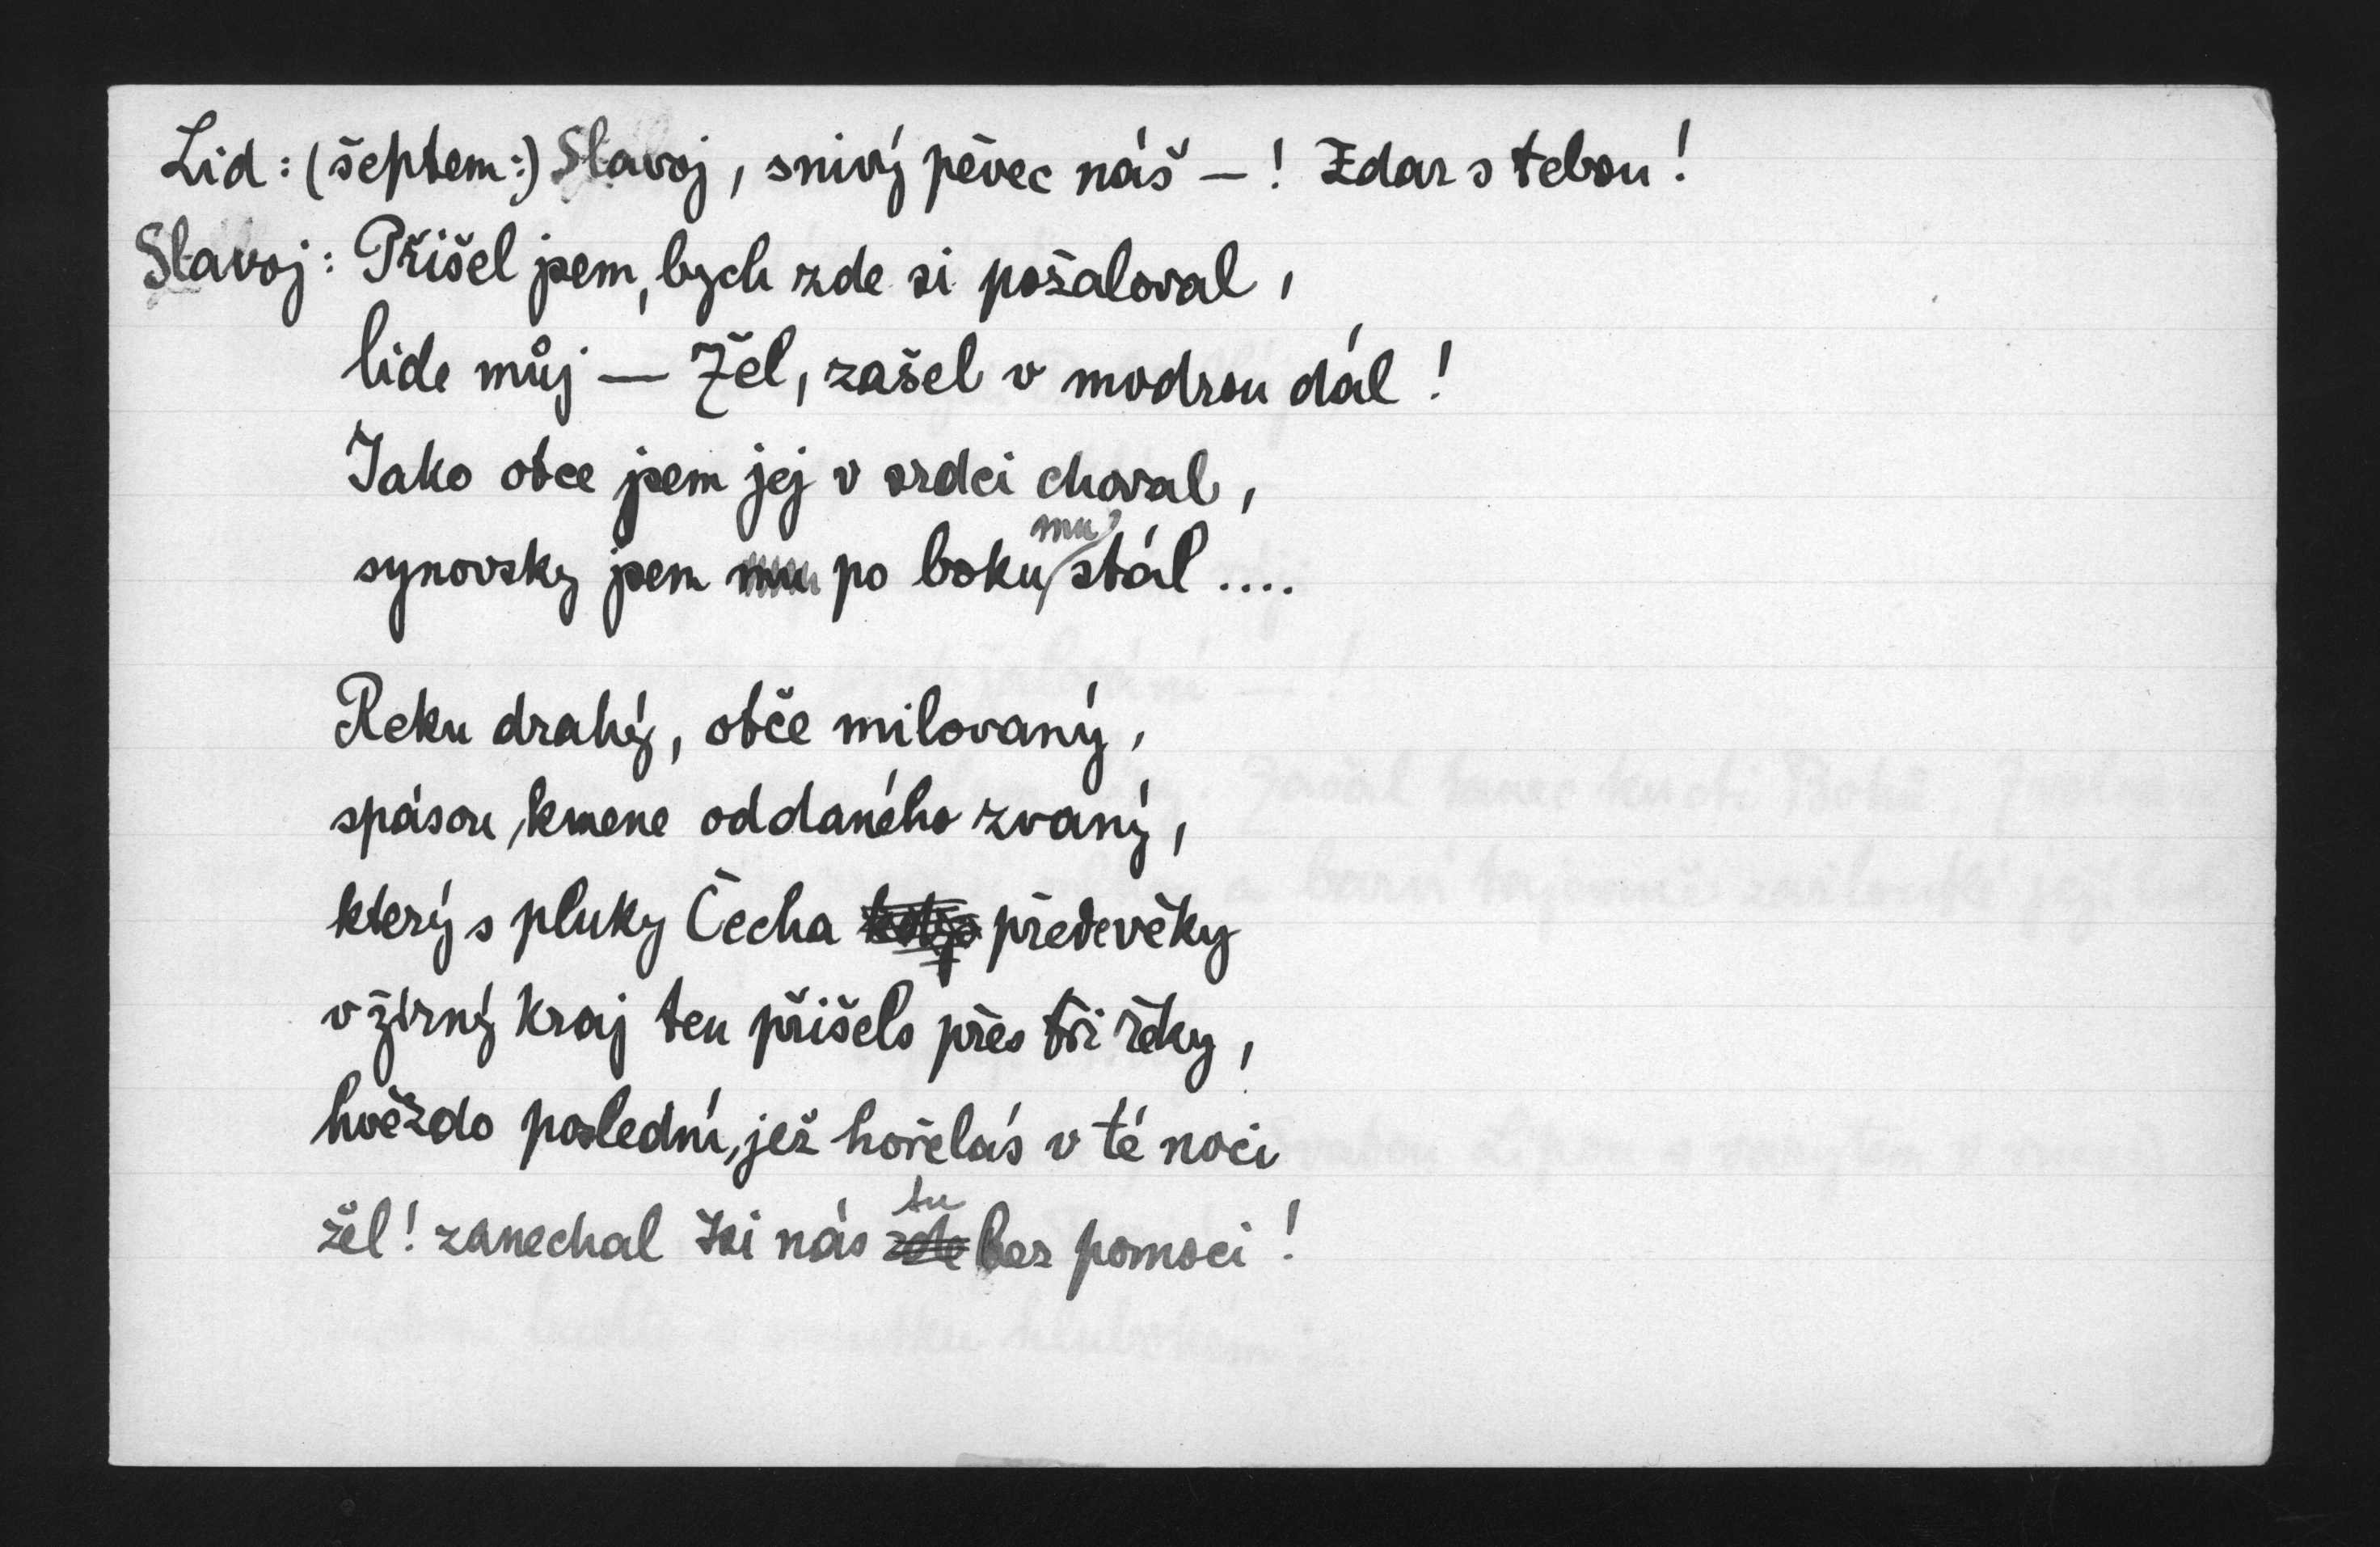 Lid: (šeptem:) Slavoj, snivý pěvec náš —! Zdar s tebou!
Slavoj: Přišel jsem, bych zde si požaloval,
lide můj — Žel, zašel v modrou dál!
Jako otce jsem jej v srdci choval,
synovsky jsem po boku mu stál ....
Reku drahý, otče milovaný,
spásou kmene oddaného zvaný,
který s pluky Čecha předevěky
v žírný kraj ten přišels přes tři řeky,
hvězdo poslední, jež hořelás v té noci
žel! zanechal jsi nás tu bez pomoci!